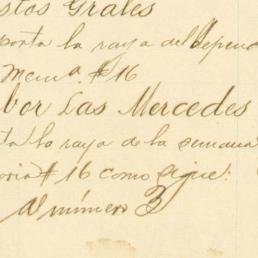 stos Grales
porta la raya del depen
Mema. # 16
bor Las Mercedes
ta la raya de la semana
oria # 16 como sigue:
Al número 3